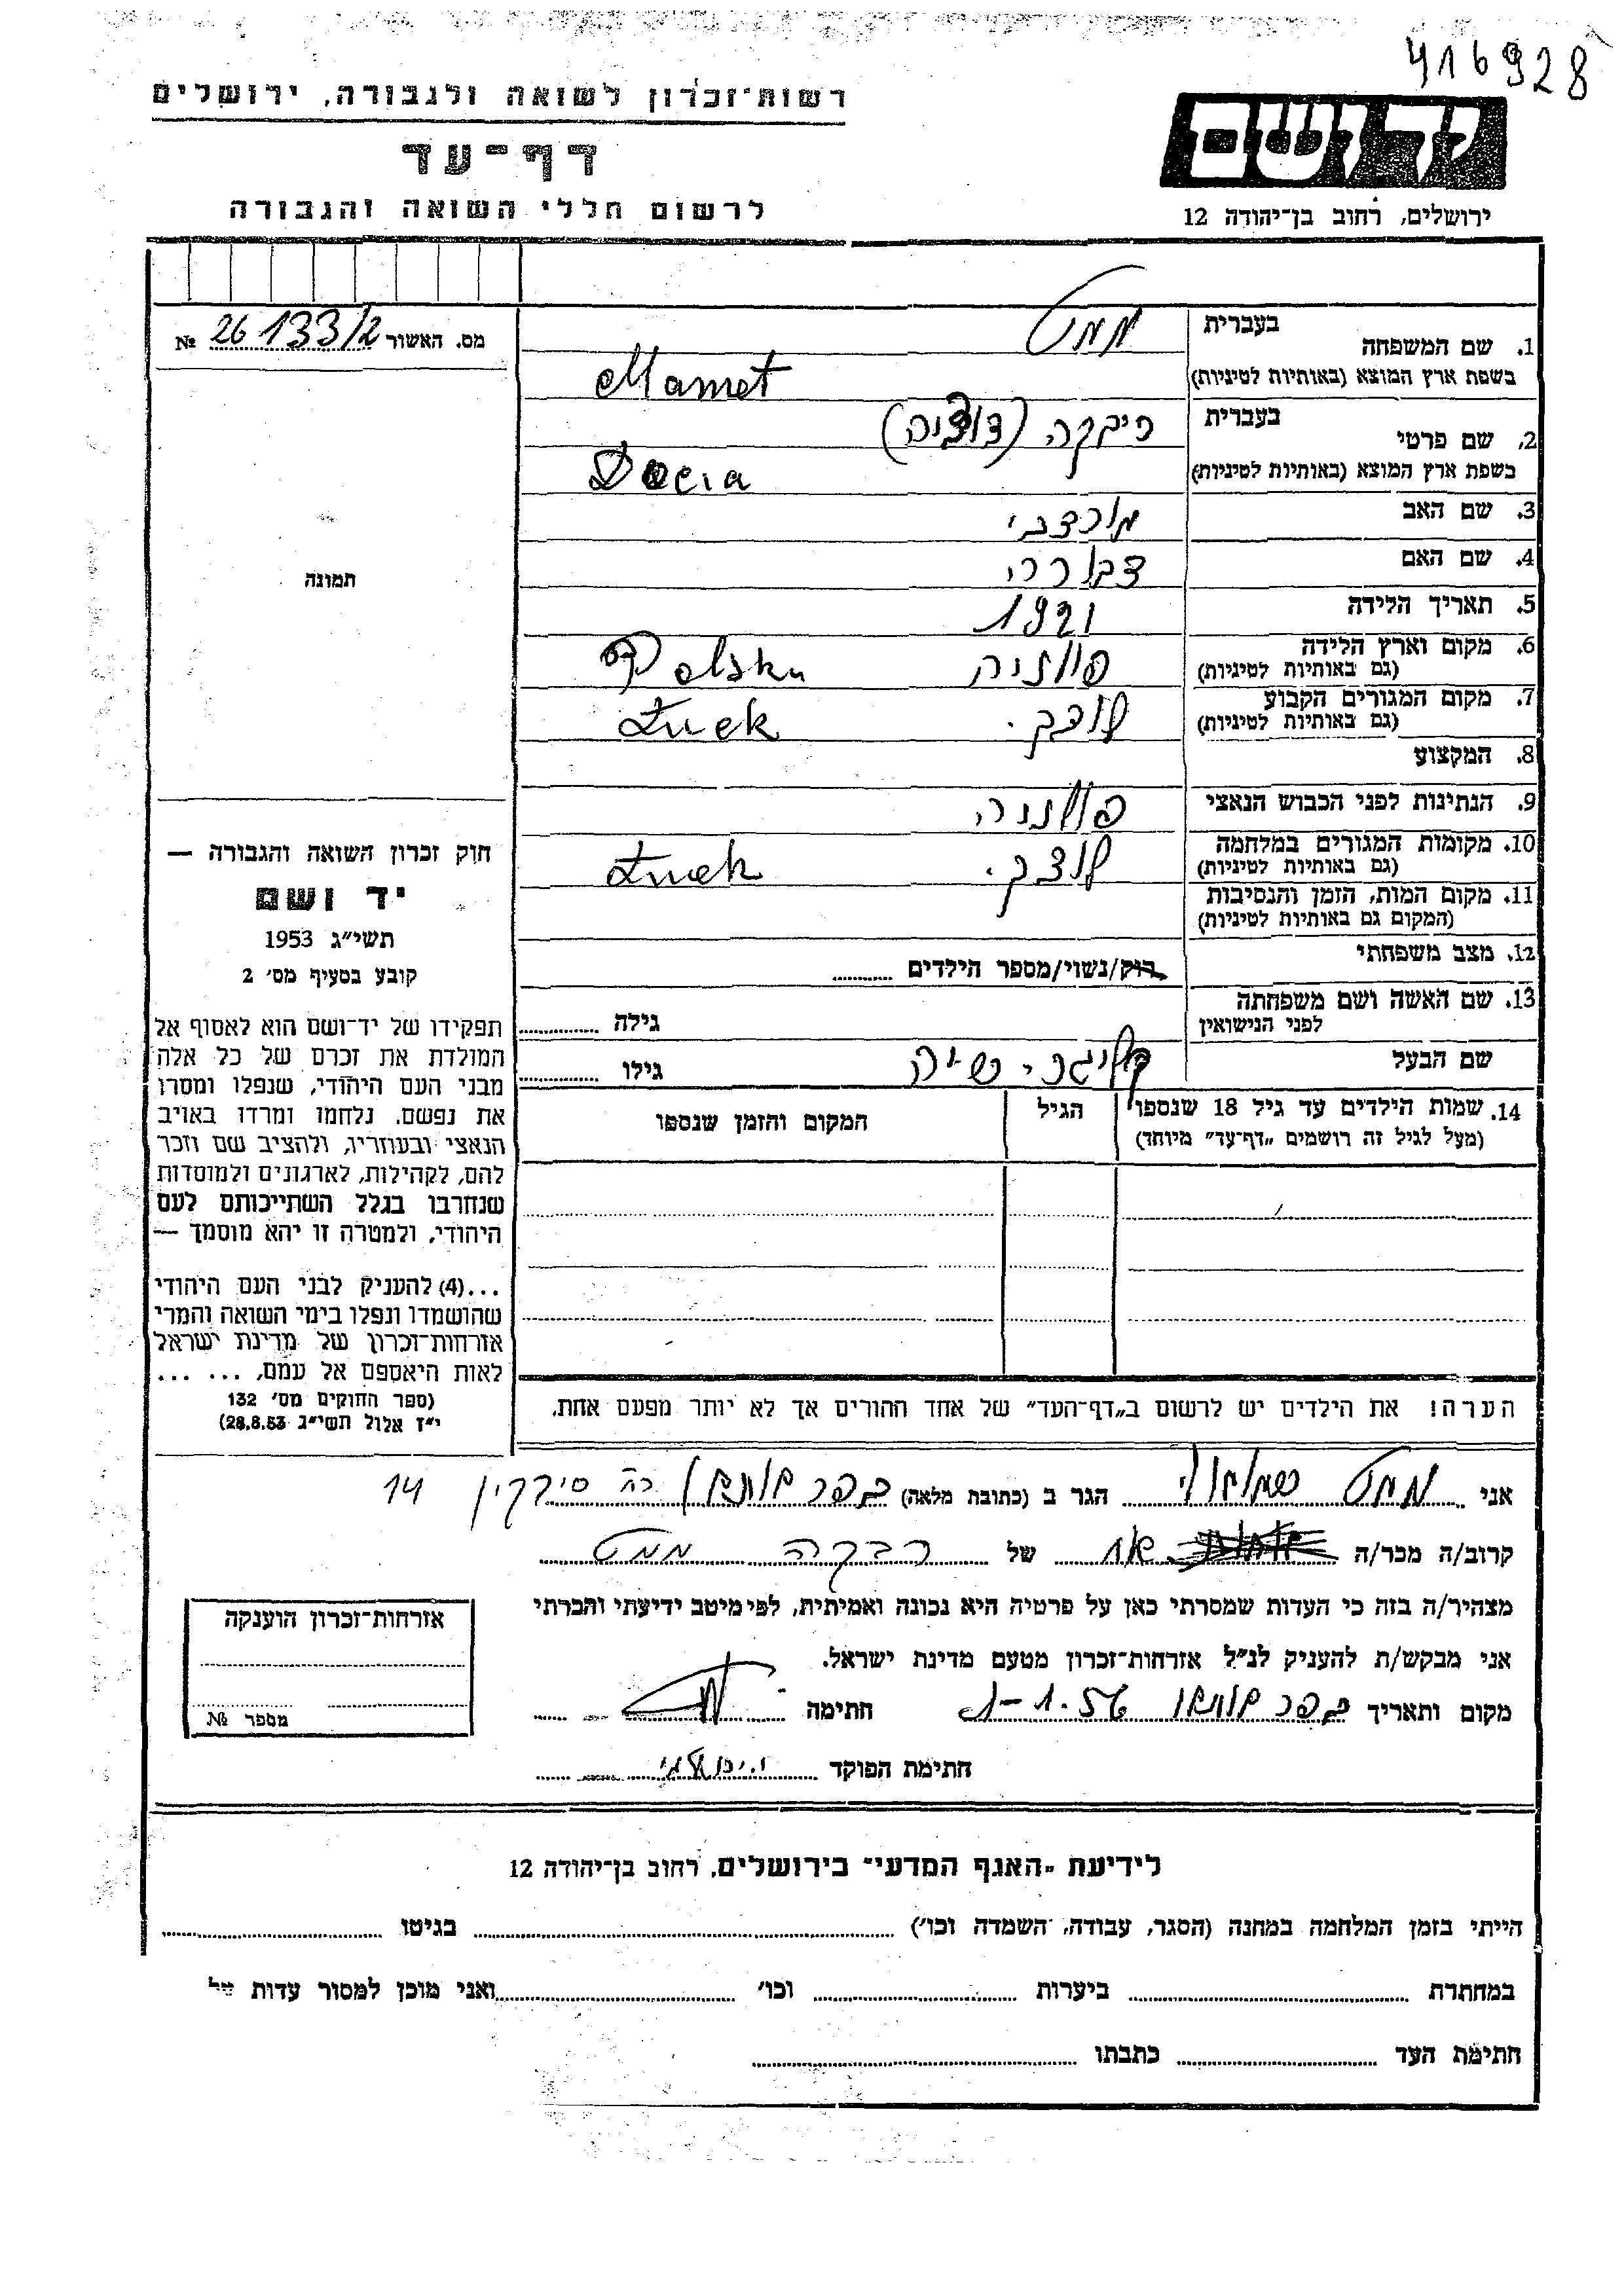 416928
רשות־זכרון לשואה ולגבורה, ירושלים
דף־עד
לרשום חללי השואה והגבורה
ידושם
ירושלים, רחוב בן־יהודה 12
מס. האשור 26133/2 №
1. שם המשפחה
בעברית ממט
בשפת ארץ המוצא (באותיות לטיניות) Mamet
2. שם פרטי
בעברית ריבקה (דוציה)
בשפת ארץ המוצא (באותיות לטיניות) Docia
3. שם האב מורדכי
4. שם האם
5. תאריך הלידה 1921
6. מקום וארץ הלידה
(גם באותיות לטיניות) פולניה Polska
7. מקום המגורים הקבוע
(גם באותיות לטיניות) לוצק. Łuck
8. המקצוע
9. הנתינות לפני הכבוש הנאצי פולניה
10. מקומות המגורים במלחמה
(גם באותיות לטיניות) לוצק. Łuck
11. מקום המות, הזמן והנסיבות
(המקום גם באותיות לטיניות)
12. מצב משפחתי רוק/נשוי/מספר הילדים
13. שם האשה ושם משפחתה
לפני הנישואין גילה
שם הבעל גילו
14. שמות הילדים עד גיל 18 שנספו
(מעל לגיל זה רושמים „דף־עד” מיוחד)
הגיל
המקום והזמן שנספו
תמונה
חוק זכרון השואה והגבורה —
יד ושם
תשי״ג 1953
קובע בסעיף מס׳ 2
תפקידו של יד־ושם הוא לאסוף אל
המולדת את זכרם של כל אלה
מבני העם היהודי, שנפלו ומסרו
את נפשם. נלחמו ומרדו באויב
הנאצי ובעוזריו, ולהציב שם וזכר
להם, לקהילות, לארגונים ולמוסדות
שנחרבו בגלל השתייכותם לעם
היהודי, ולמטרה זו יהא מוסמך —
...(4) להעניק לבני העם היהודי
שהושמדו ונפלו בימי השואה והמרי
אזרחות־זכרון של מדינת ישראל
לאות היאספם אל עמם, ... ...
(ספר החוקים מס׳ 132
י״ז אלול תשי״ג 28.8.53)
הערה! את הילדים יש לרשום ב„דף־העד” של אחד ההורים אך לא יותר מפעם אחת.
אני ממט שמואל הגר ב (כתובת מלאה) רח סירקין 14
קרוב/ה מכר/ה אח של רבקה ממט
מצהיר/ה בזה כי העדות שמסרתי כאן על פרטיה היא נכונה ואמיתית, לפי מיטב ידיעתי והכרתי
אני מבקש/ת להעניק לנ״ל אזרחות־זכרון מטעם מדינת ישראל.
מקום ותאריך 1-1.56 חתימה
חתימת הפוקד
אזרחות־זכרון הוענקה
מספר №
לידיעת „האגף המדעי” בירושלים, רחוב בן־יהודה 12
הייתי בזמן המלחמה במחנה (הסגר, עבודה, השמדה וכו׳) בגיטו
במחתרת ביערות וכו׳ ואני מוכן למסור עדות על
חתימת העד כתבתו